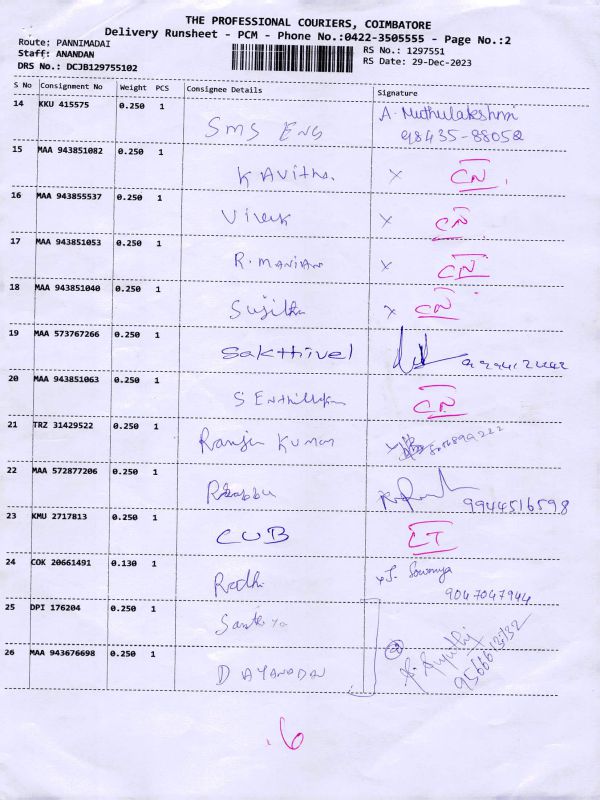 THE PROFESSIONAL COURIERS, COIMBATORE
Delivery Runsheet - PCM - Phone No.:0422-3505555 - Page No.:2
Route: PANNIMADAI
Staff: ANANDAN
RS No.: 1297551
DRS No.: DCJB129755102
RS Date: 29-Dec-2023
S No Consignment No Weight PCS Consignee Details Signature
14 KKU 415575 0.250 1 SMS ENG A. Muthulakshmi
98435-88052
15 MAA 943851082 0.250 1 KAVitha. x CN
16 MAA 943855537 0.250 1 Vivek x CN
17 MAA 943851053 0.250 1 R. MANIAN x CN
18 MAA 943851040 0.250 1 Sujitha x CN
19 MAA 573767266 0.250 1 Sakthivel
20 MAA 943851063 0.250 1 CN
21 TRZ 31429522 0.250 1 Ranjin Kumar
22 MAA 572877206 0.250 1 9944516598
23 KMU 2717813 0.250 1 CUB LT
24 COK 20661491 0.130 1 Radhi x J. Sowmya
9047047944
25 DPI 176204 0.250 1
26 MAA 943676698 0.250 1 DAYANADAN
.6